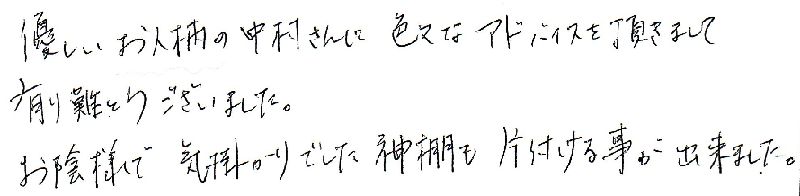 優しいお人柄の中村さんに 色々なアドバイスを頂きまして
有り難とうございました。
お陰様で 気掛かりでした神棚も 片付ける事が出来ました。